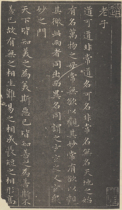 老子
道可道非常道名可名非常名無名天地之始
有名萬物之母常無欲以觀其妙常有欲以觀
其徼此兩者同出而異名同謂之玄玄之又玄眾
妙之門
天下皆知美之為美斯惡已皆知善之為善斯不善
已故有無之相生難易之相成長短之相形